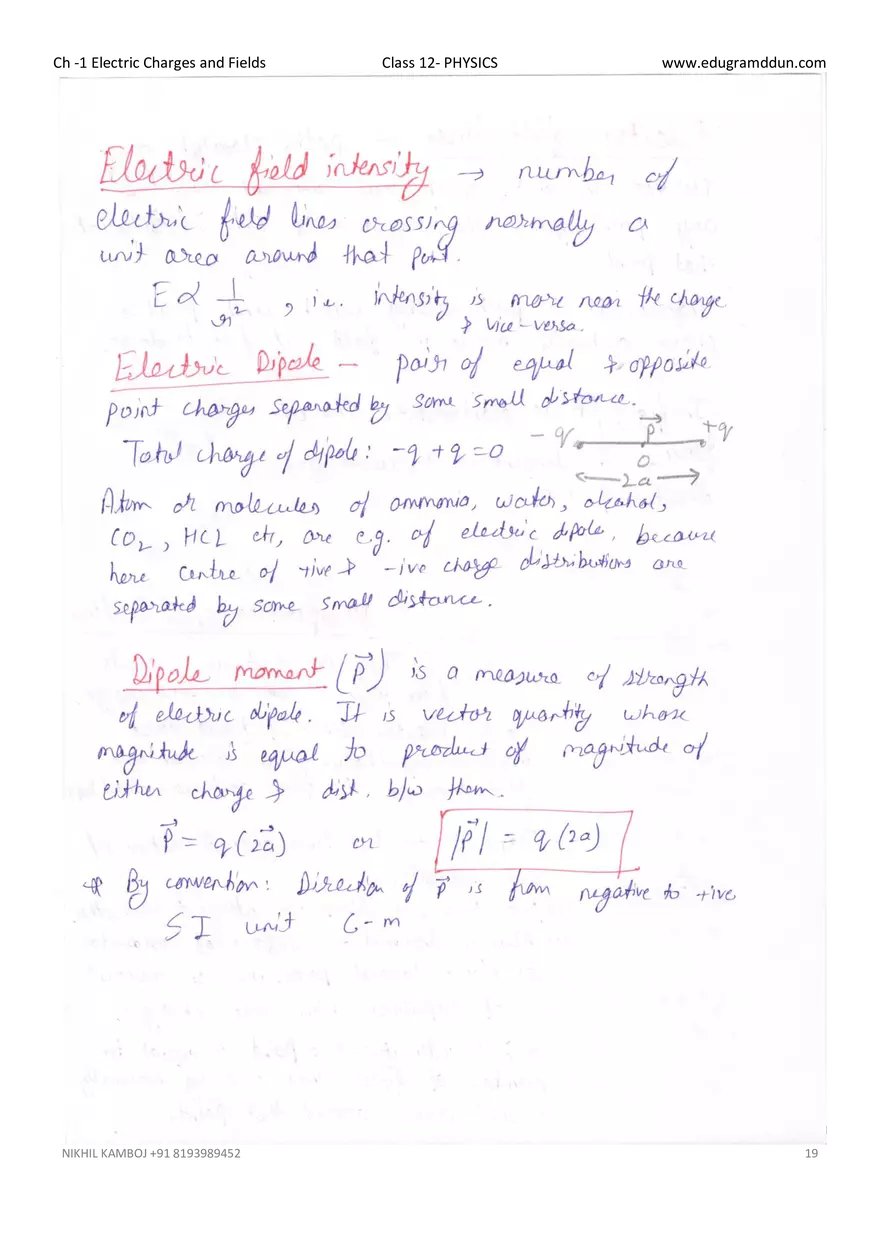 Ch -1 Electric Charges and Fields Class 12- PHYSICS www.edugramddun.com
Electric field intensity → number of
electric field lines crossing normally a
unit area around that point.
E ∝ 1/r² , i.e. intensity is more near the charge
& vice-versa.
Electric Dipole – pair of equal & opposite
point charges separated by some small distance.
Total charge of dipole: -q + q = 0
-q p⃗ +q
O
2a
Atom or molecules of ammonia, water, alcohol,
CO₂, HCL etc, are e.g. of electric dipole, because
here centre of +ive & -ive charge distributions are
separated by some small distance.
Dipole moment (p⃗) is a measure of strength
of electric dipole. It is vector quantity whose
magnitude is equal to product of magnitude of
either charge & dist. b/w them.
p⃗ = q(2a⃗) or |p⃗| = q(2a)
* By convention: Direction of p⃗ is from negative to +ive
SI unit C-m
NIKHIL KAMBOJ +91 8193989452 19